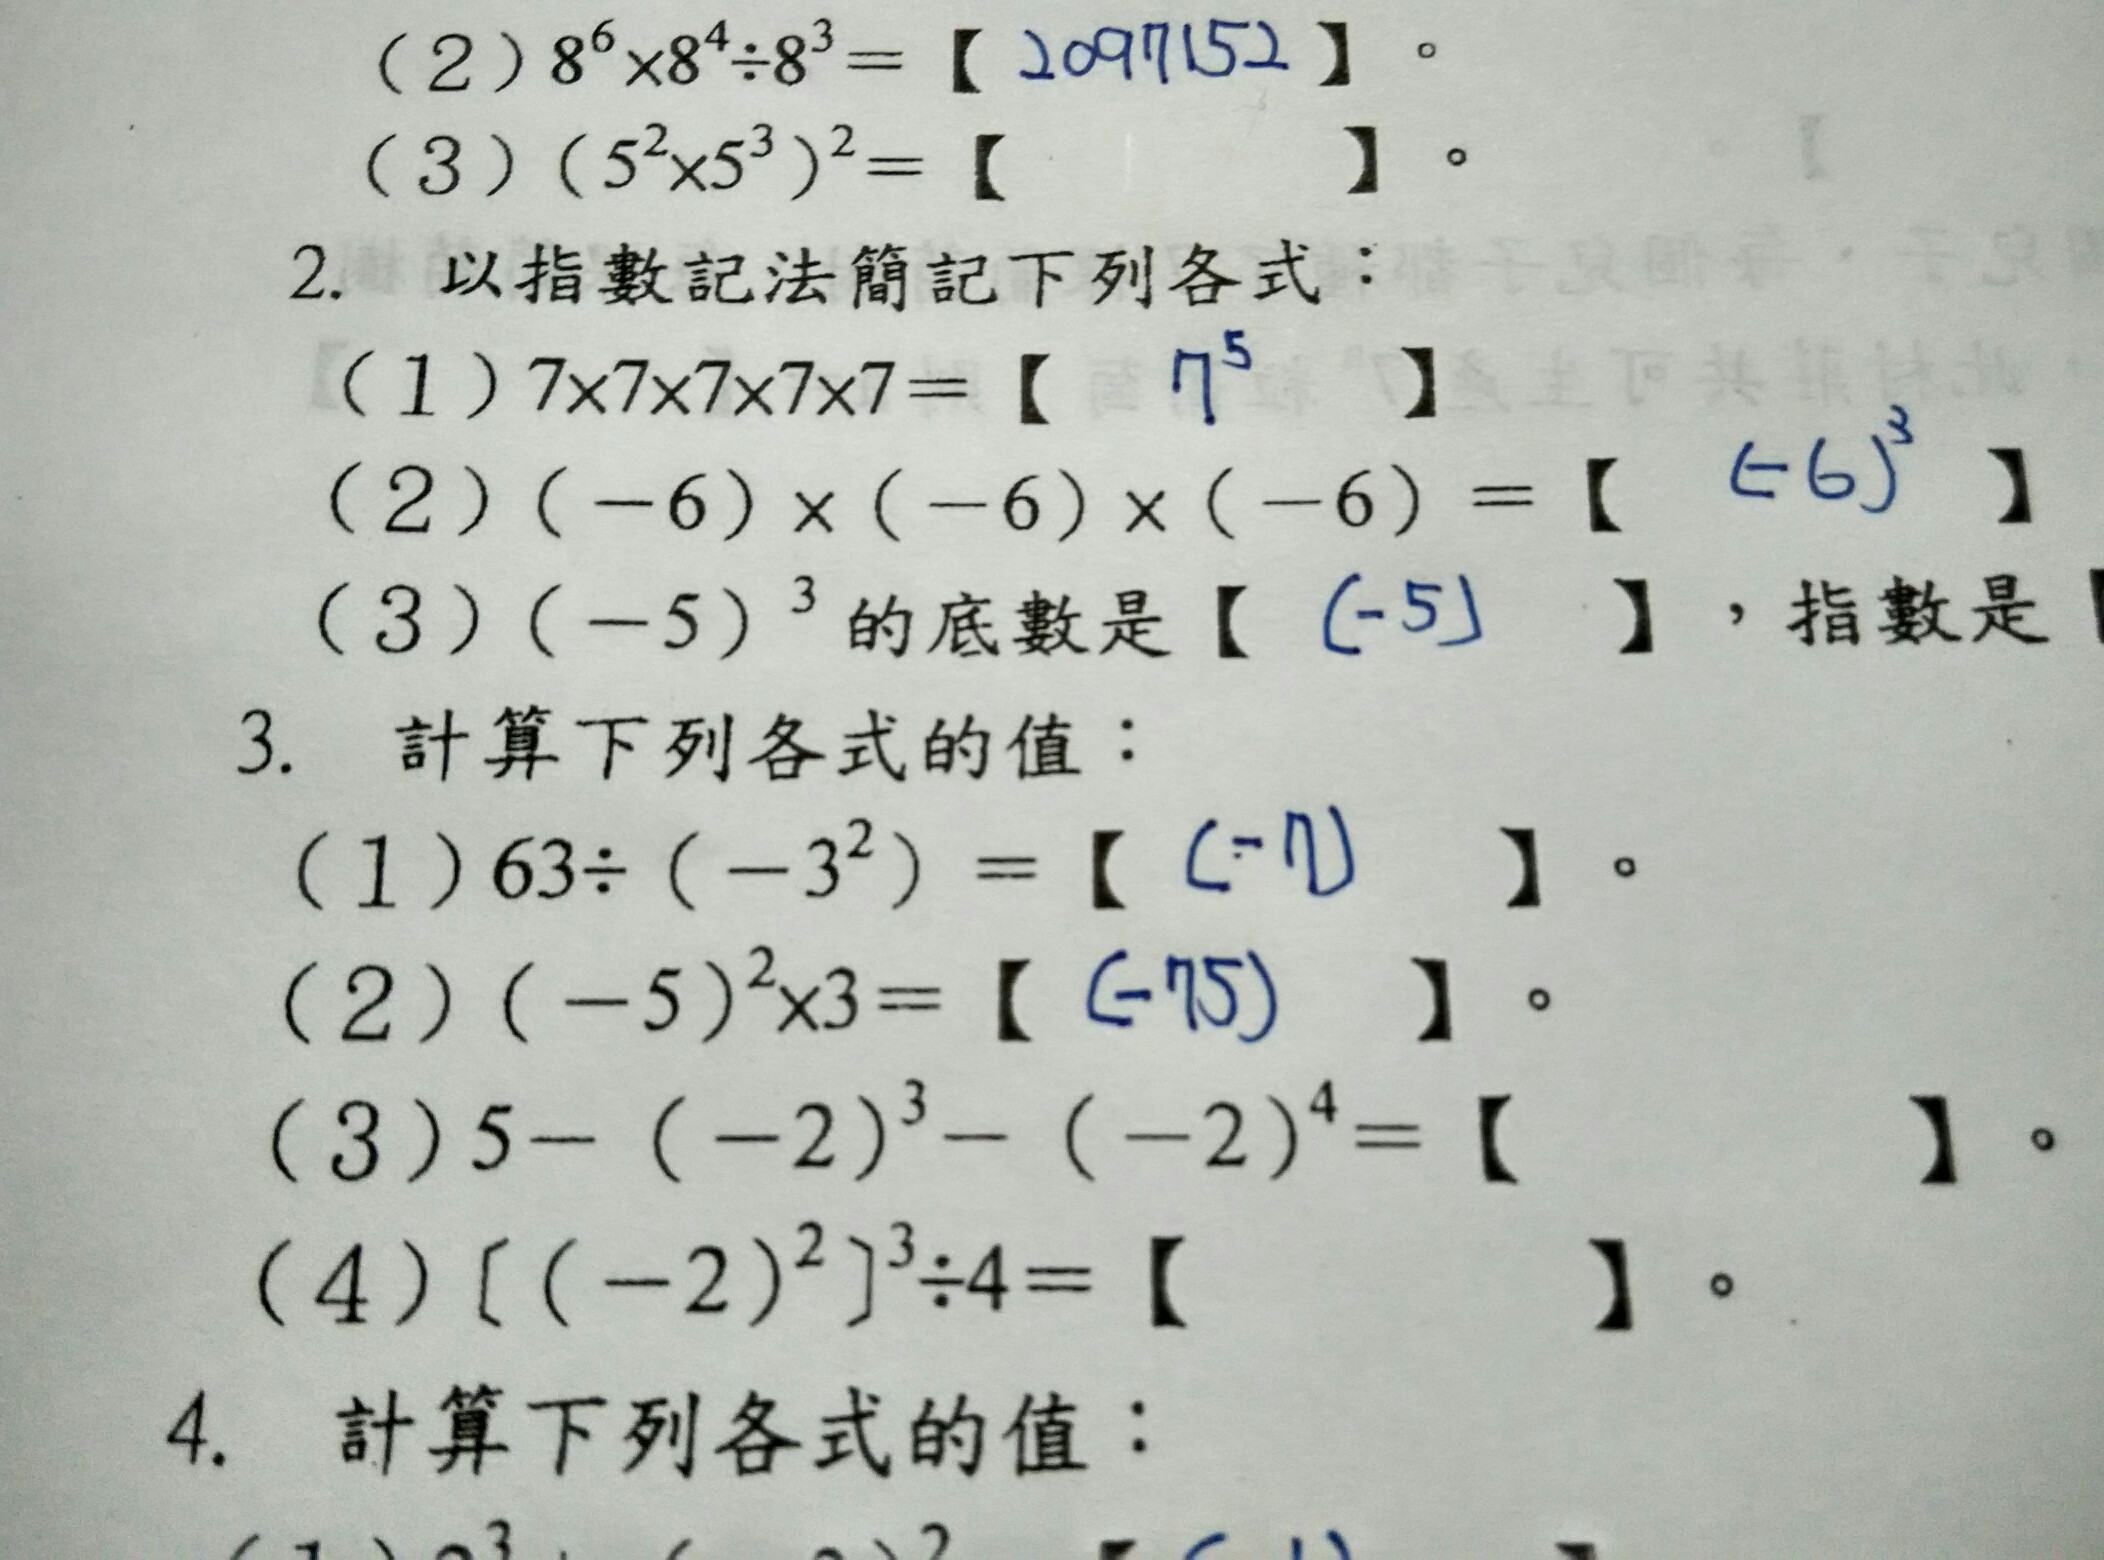 (2) 8⁶×8⁴÷8³=【 2097152 】。
(3) (5²×5³)²=【 】。
2. 以指數記法簡記下列各式:
(1) 7×7×7×7×7=【 7⁵ 】
(2) (-6)×(-6)×(-6)=【 (-6)³ 】
(3) (-5)³的底數是【 (-5) 】,指數是【
3. 計算下列各式的值:
(1) 63÷(-3²)=【 (-7) 】。
(2) (-5)²×3=【 (-75) 】。
(3) 5-(-2)³-(-2)⁴=【 】。
(4) [(-2)²]³÷4=【 】。
4. 計算下列各式的值: